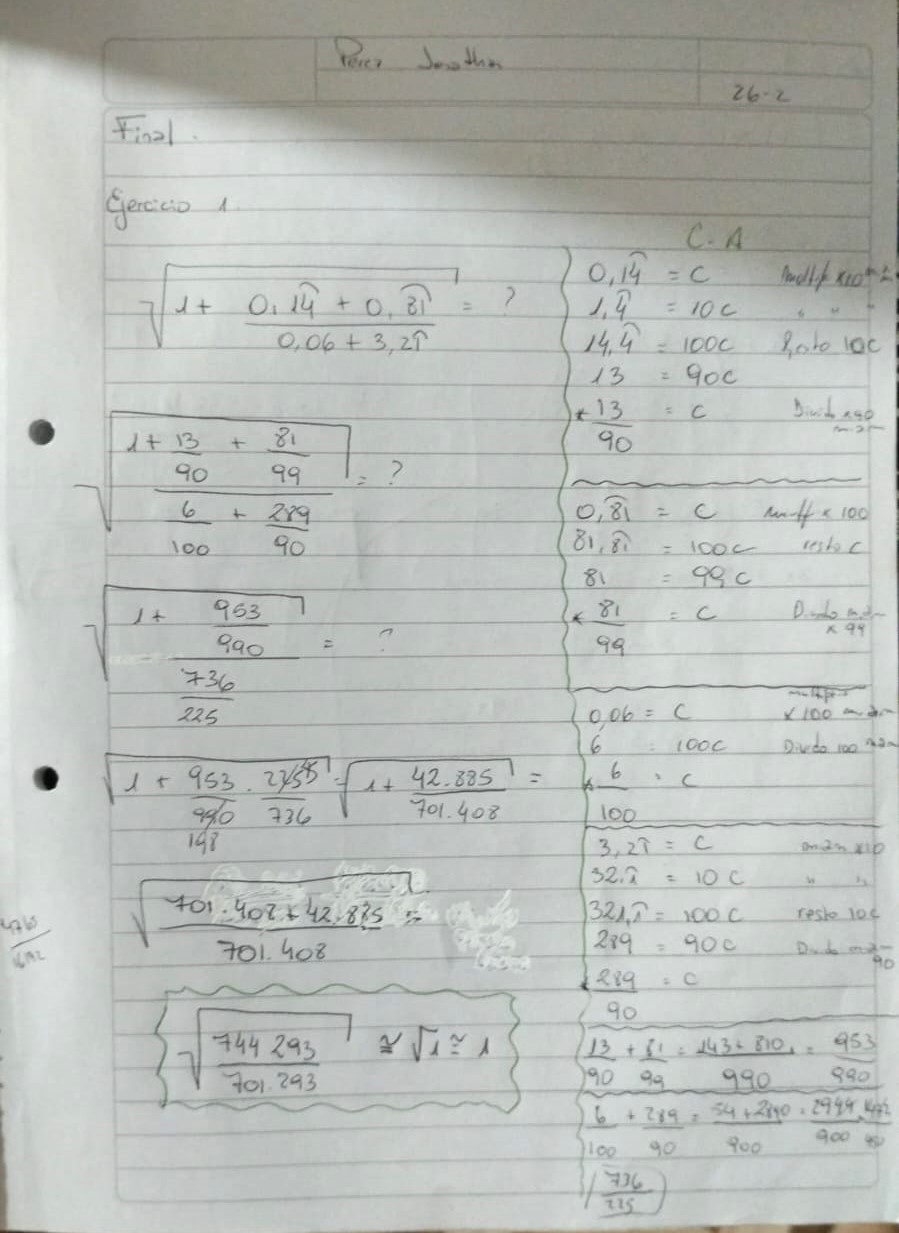 Perez Jonathan
26-2
Final.
Ejercicio 1.
√(1 + (0,14̂ + 0,8͡1) / (0,06 + 3,21̂)) = ?
√((1 + 13/90 + 81/99) / (6/100 + 289/90)) = ?
√(1 + (953/990) / (736/225)) = ?
√(1 + 953/990 . /736) = √(1 + 42.885/701.408) =
198
√((701.408 + 42.885) / 701.408) =
√(744 293 / 701.293) ≅ √1 ≅ 1
C. A
0,14̂ = C
1,4̂ = 10C " " "
14,4̂ = 100C Resto 10C
13 = 90C
13/90 = C Divido x 90
0,8͡1 = C x 100
81,8͡1 = 100C resto C
81 = 99C
81/99 = C Divido x 99
0,06 = C x 100
6 = 100C Divido 100
6/100 = C
3,21̂ = C x10
32,1̂ = 10C " "
321,1̂ = 100C resto 10C
289 = 90C 90
289/90 = C
13/90 + 81/99 = (143 + 810)/990 = 953/990
6/100 + 289/90 = (54 + 2890)/900 = 2944/900
736/225